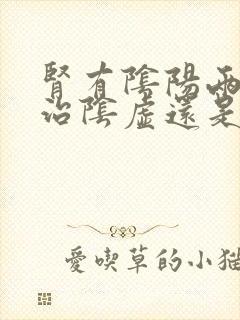 腎有陰陽兩
治陰虛還是
愛喫草的小猫